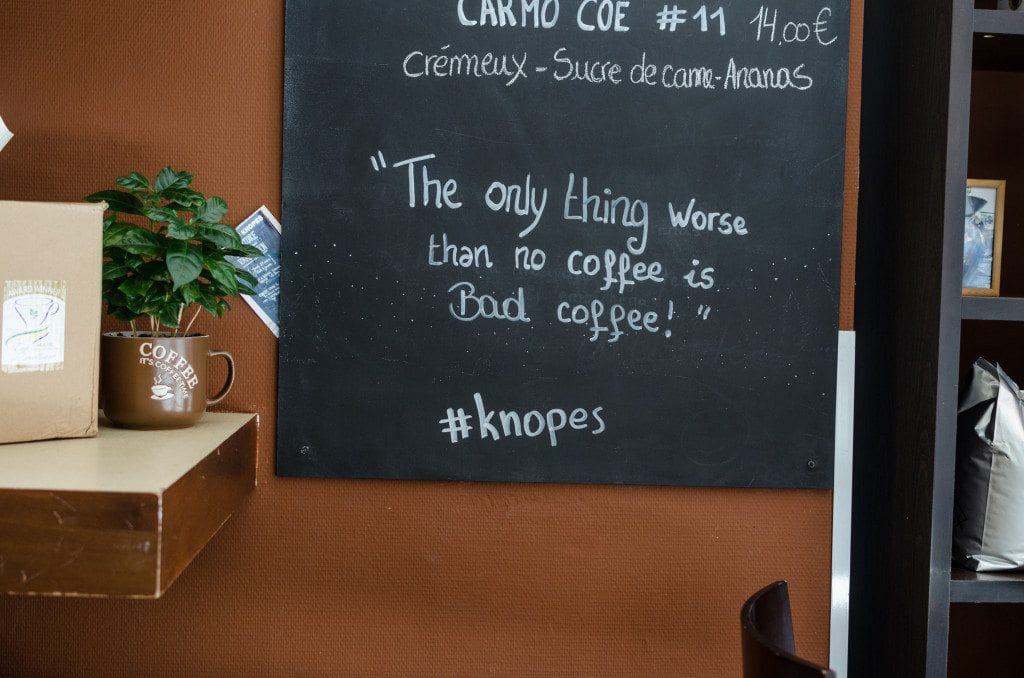 CARMO COE #11 14,00€
Crémeux - Sucre de canne - Ananas
"The only thing worse
than no coffee is
Bad coffee! "
#knopes
KNOPES
AWARD WINNER
COFFEE
IT'S COFFEE TIME